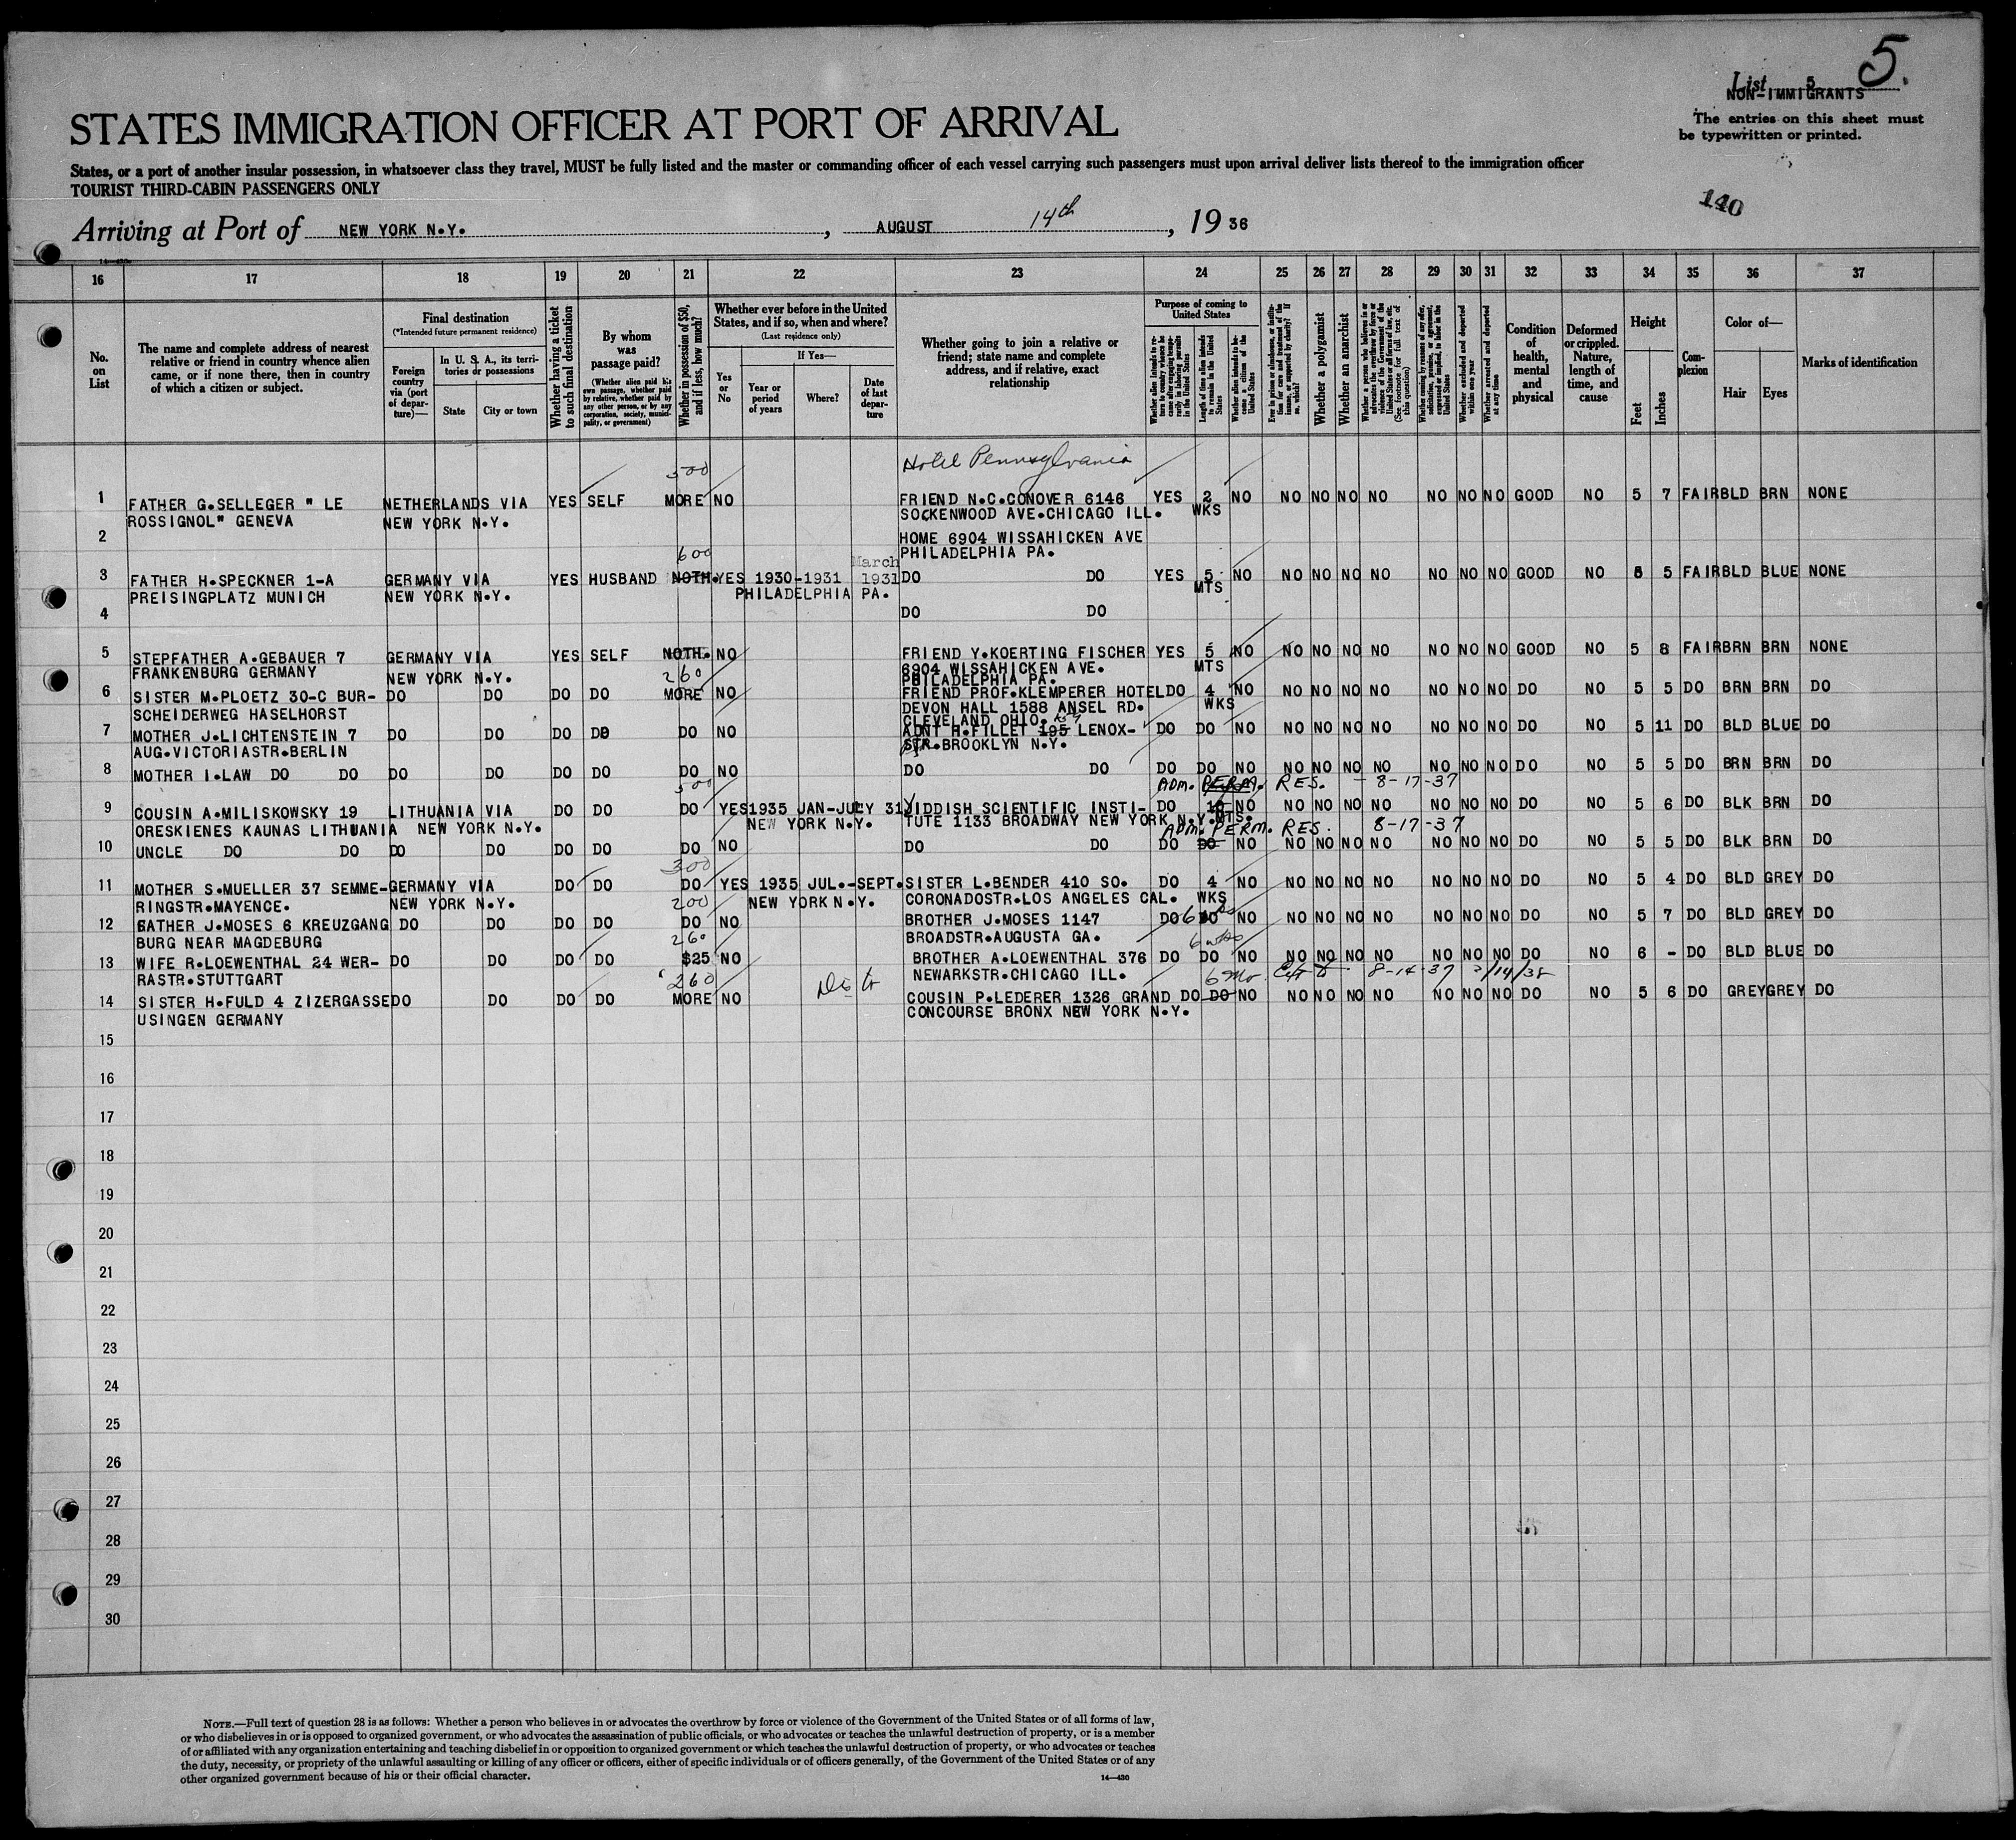 List 5 5.
NON-IMMIGRANTS
The entries on this sheet must
be typewritten or printed.
STATES IMMIGRATION OFFICER AT PORT OF ARRIVAL
States, or a port of another insular possession, in whatsoever class they travel, MUST be fully listed and the master or commanding officer of each vessel carrying such passengers must upon arrival deliver lists thereof to the immigration officer
TOURIST THIRD-CABIN PASSENGERS ONLY
140
Arriving at Port of NEW YORK N.Y., AUGUST 14th, 19 36
16 17 18 19 20 21 22 23 24 25 26 27 28 29 30 31 32 33 34 35 36 37
No. on List
The name and complete address of nearest relative or friend in country whence alien came, or if none there, then in country of which a citizen or subject.
Final destination
(*Intended future permanent residence)
Foreign country via (port of departure)—
In U. S. A., its territories or possessions
State
City or town
Whether having a ticket to such final destination
By whom was passage paid?
(Whether alien paid his own passage, whether paid by relative, whether paid by any other person, or by any corporation, society, municipality, or government)
Whether in possession of $50, and if less, how much?
Whether ever before in the United States, and if so, when and where?
(Last residence only)
Yes or No
If Yes—
Year or period of years
Where?
Date of last departure
Whether going to join a relative or friend; state name and complete address, and if relative, exact relationship
Purpose of coming to United States
Length of time alien intends to remain in the United States
Whether alien intends to become a citizen of the United States
Whether a polygamist
Whether an anarchist
(See footnote for full text of this question)
Whether excluded and deported within one year
Whether arrested and deported at any time
Condition of health, mental and physical
Deformed or crippled. Nature, length of time, and cause
Height
Feet
Inches
Complexion
Color of—
Hair
Eyes
Marks of identification
Hotel Pennsylvania
500
1 FATHER G.SELLEGER " LE NETHERLANDS VIA YES SELF MORE NO FRIEND N.C.CONOVER 6146 YES 2 NO NO NO NO NO NO NO NO GOOD NO 5 7 FAIR BLD BRN NONE
ROSSIGNOL" GENEVA NEW YORK N.Y. SOCKENWOOD AVE.CHICAGO ILL. WKS
2 HOME 6904 WISSAHICKEN AVE
600 PHILADELPHIA PA.
March
3 FATHER H.SPECKNER 1-A GERMANY VIA YES HUSBAND NOTH. YES 1930-1931 1931 DO DO YES 5 NO NO NO NO NO NO NO NO GOOD NO 5 5 FAIR BLD BLUE NONE
PREISINGPLATZ MUNICH NEW YORK N.Y. PHILADELPHIA PA. MTS
4 DO DO
5 STEPFATHER A.GEBAUER 7 GERMANY VIA YES SELF NOTH. NO FRIEND Y.KOERTING FISCHER YES 5 NO NO NO NO NO NO NO NO GOOD NO 5 8 FAIR BRN BRN NONE
FRANKENBURG GERMANY NEW YORK N.Y. 260 6904 WISSAHICKEN AVE. MTS
PHILADELPHIA PA.
6 SISTER M.PLOETZ 30-C BUR- DO DO DO DO MORE NO FRIEND PROF.KLEMPERER HOTEL DO 4 NO NO NO NO NO NO NO NO DO NO 5 5 DO BRN BRN DO
SCHEIDERWEG HASELHORST DEVON HALL 1588 ANSEL RD. WKS
CLEVELAND OHIO.
7 MOTHER J.LICHTENSTEIN 7 DO DO DO DO DO NO AUNT H.FILLET 195 LENOX- DO DO NO NO NO NO NO NO NO NO DO NO 5 11 DO BLD BLUE DO
AUG.VICTORIASTR.BERLIN STR.BROOKLYN N.Y.
8 MOTHER I.LAW DO DO DO DO DO DO DO NO DO DO DO DO NO NO NO NO NO NO NO NO DO NO 5 5 DO BRN BRN DO
500 ADM. PERM. RES. - 8-17-37
9 COUSIN A.MILISKOWSKY 19 LITHUANIA VIA DO DO DO YES 1935 JAN-JULY 31 YIDDISH SCIENTIFIC INSTI- DO 10 NO NO NO NO NO NO NO NO DO NO 5 6 DO BLK BRN DO
ORESKIENES KAUNAS LITHUANIA NEW YORK N.Y. NEW YORK N.Y. TUTE 1133 BROADWAY NEW YORK N.Y. MTS.
ADM. PERM. RES. 8-17-37
10 UNCLE DO DO DO DO DO DO DO NO DO DO DO DO NO NO NO NO NO NO NO NO DO NO 5 5 DO BLK BRN DO
300
11 MOTHER S.MUELLER 37 SEMME- GERMANY VIA DO DO DO YES 1935 JUL.-SEPT. SISTER L.BENDER 410 SO. DO 4 NO NO NO NO NO NO NO NO DO NO 5 4 DO BLD GREY DO
RINGSTR.MAYENCE. NEW YORK N.Y. 200 NEW YORK N.Y. CORONADOSTR.LOS ANGELES CAL. WKS
12 FATHER J.MOSES 6 KREUZGANG DO DO DO DO DO NO BROTHER J.MOSES 1147 DO 6 DO NO NO NO NO NO NO NO NO DO NO 5 7 DO BLD GREY DO
BURG NEAR MAGDEBURG 260 BROADSTR.AUGUSTA GA. 6 wks
13 WIFE R.LOEWENTHAL 24 WER- DO DO DO DO $25 NO BROTHER A.LOEWENTHAL 376 DO DO NO NO NO NO NO NO NO NO DO NO 6 - DO BLD BLUE DO
RASTR.STUTTGART 260 NEWARKSTR.CHICAGO ILL. 6 mo 8-14-37 2/14/38
14 SISTER H.FULD 4 ZIZERGASSE DO DO DO DO MORE NO COUSIN P.LEDERER 1326 GRAND DO DO NO NO NO NO NO NO NO NO DO NO 5 6 DO GREY GREY DO
USINGEN GERMANY CONCOURSE BRONX NEW YORK N.Y.
15
16
17
18
19
20
21
22
23
24
25
26
27
28
29
30
NOTE.—Full text of question 28 is as follows: Whether a person who believes in or advocates the overthrow by force or violence of the Government of the United States or of all forms of law,
or who disbelieves in or is opposed to organized government, or who advocates the assassination of public officials, or who advocates or teaches the unlawful destruction of property, or is a member
of or affiliated with any organization entertaining and teaching disbelief in or opposition to organized government or which teaches the unlawful destruction of property, or who advocates or teaches
the duty, necessity, or propriety of the unlawful assaulting or killing of any officer or officers, either of specific individuals or of officers generally, of the Government of the United States or of any
other organized government because of his or their official character.
14—430